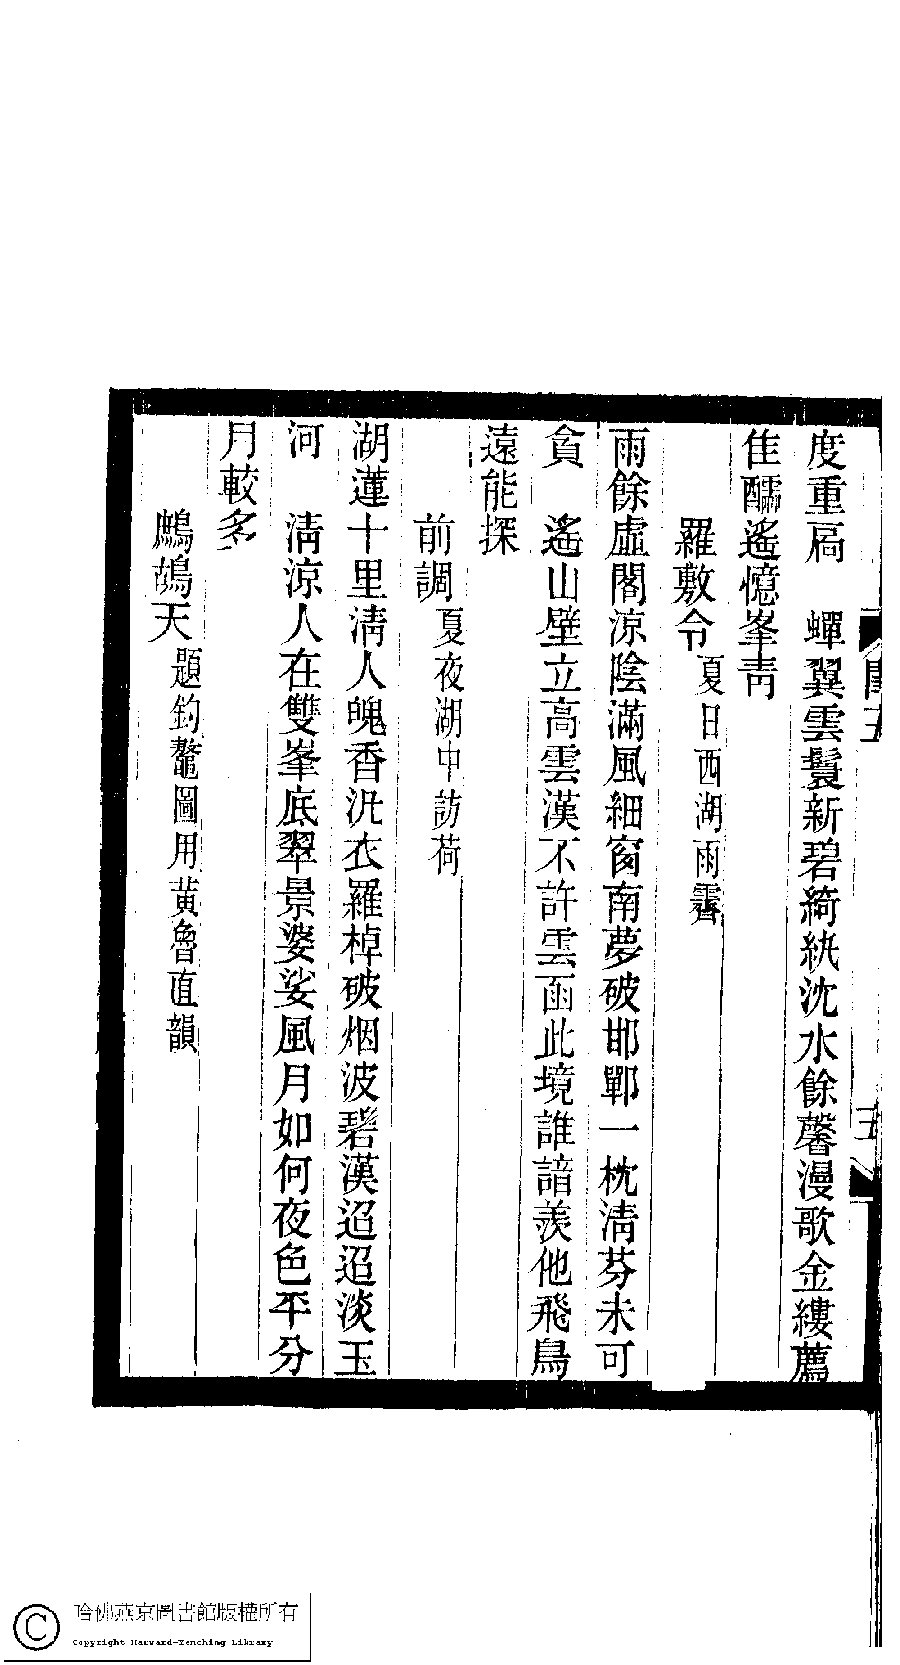 度重扃　蟬翼雲鬟新碧綺紈沈水餘馨漫歌金縷薦
佳醹遙憶峯靑
羅敷令夏日西湖雨霽
雨餘虛閣涼陰滿風細窗南夢破邯鄲一枕淸芬未可
貪　遙山壁立高雲漢不許雲函此境誰諳羨他飛鳥
遠能探
前調夏夜湖中訪荷
湖蓮十里淸人魄香汎衣羅棹破烟波碧漢迢迢淡玉
河　淸涼人在雙峯底翠景婆娑風月如何夜色平分
月較多
鷓鴣天題釣鼇圖用黃魯直韻
哈佛燕京圖書館版權所有
Copyright Harvard-Yenching Library